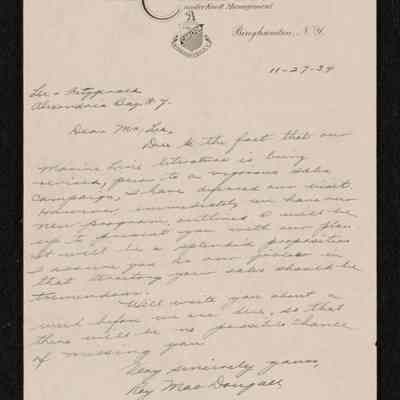 under Knott Management
Binghamton, N.Y.
11-27-34
Lee & Fitzgerald
Alexandria Bay N.Y.
Dear Mr. Lee,
Due to the fact that our
Marine line literature is being
revised, prior to a vigorous sales
campaign, I have defered our visit.
However, immediately we have our
new program outlined I will be
up to present you with our plan
It will be a splendid proposition
I assure you as our in
that territory your sales should be
tremendous.
Will write you about a
week before we are due, so that
there will be no possible chance
of missing you
Very sincerely yours,
Ray MacDougall